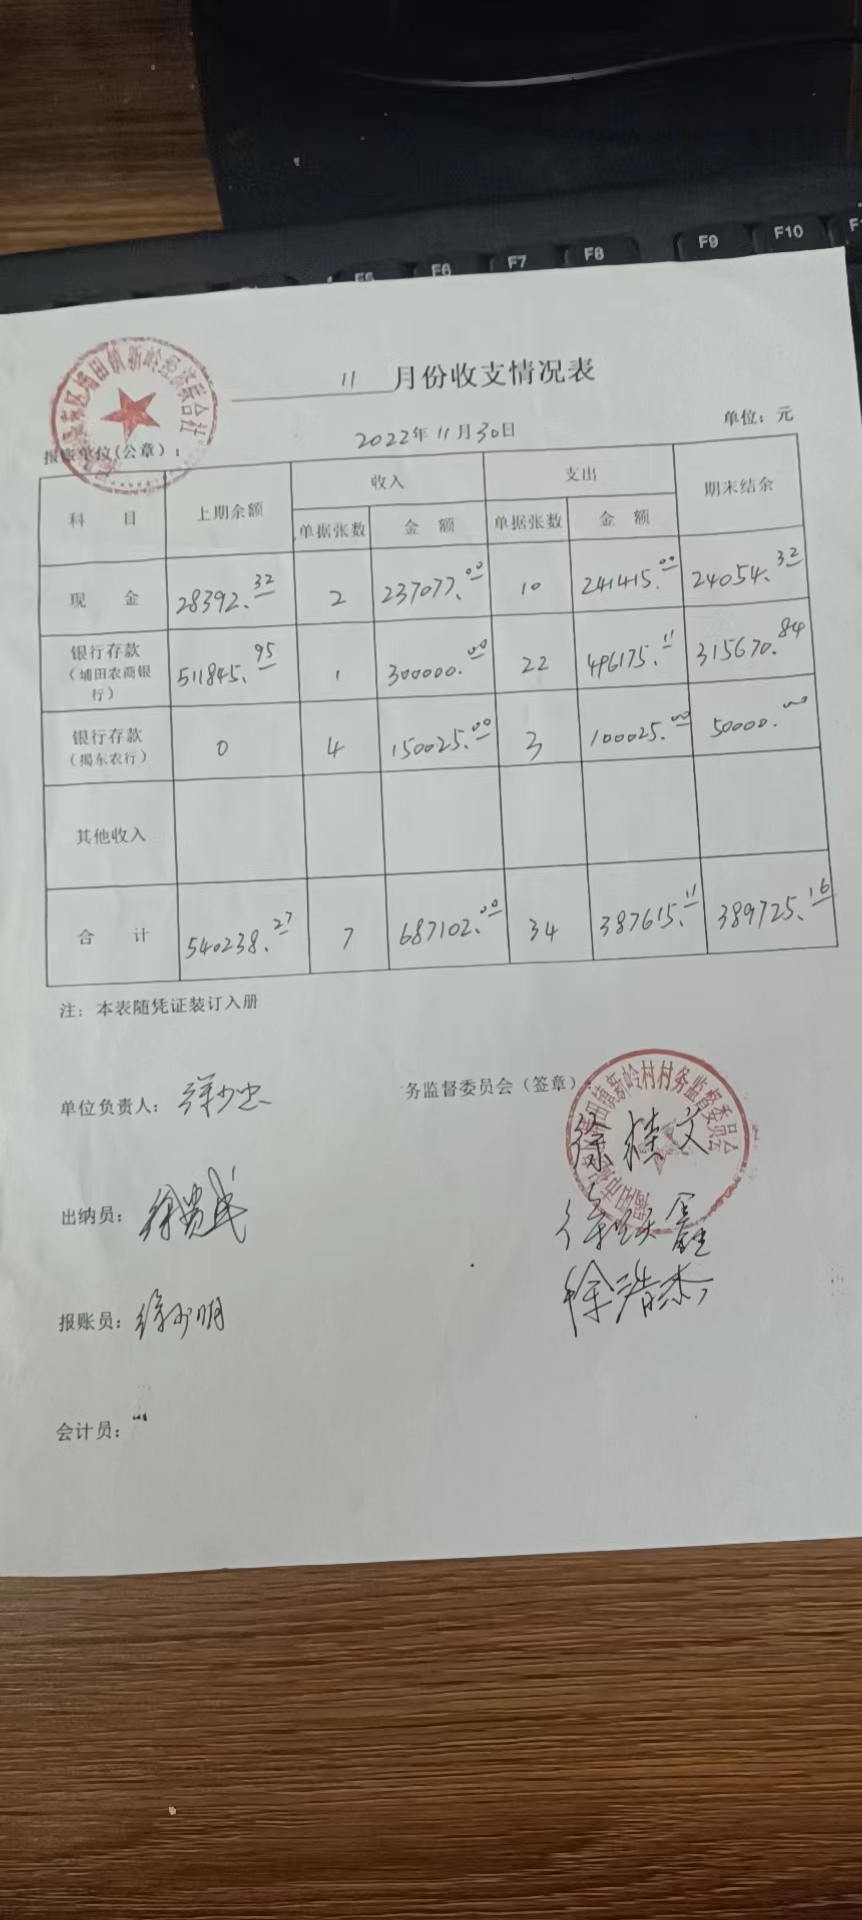 F5 F6 F7 F8 F9 F10
11 月份收支情况表
报账单位(公章)：
2022年11月30日
单位：元
科 目 上期余额 收入 支出 期末结余
单据张数 金 额 单据张数 金 额
现 金 28392.32 2 237077.00 10 241415.00 24054.32
银行存款
（埔田农商银行） 511845.95 1 300000.00 22 496175.11 315670.84
银行存款
（揭东农行） 0 4 150025.00 3 100025.00 50000.00
其他收入
合 计 540238.27 7 687102.00 34 387615.11 389725.16
注：本表随凭证装订入册
单位负责人：
务监督委员会（签章）：
徐桂文
出纳员：
徐浩杰
报账员：
会计员：
埔田镇新岭经济联合社
埔田镇新岭村村务监督委员会